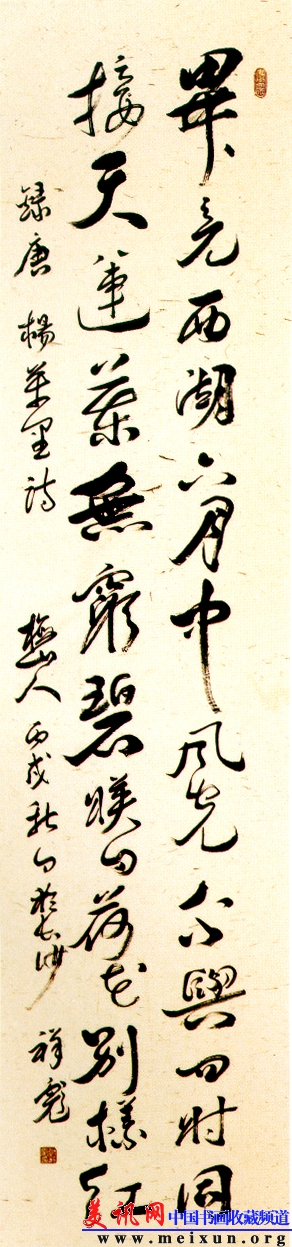 畢竟西湖六月中風光不與四時同
接天蓮葉無窮碧暎日荷花別樣紅
錄唐楊萬里詩 梅山人 丙戌秋日於長沙 祥彪
美讯网 中国书画收藏频道
www.meixun.org